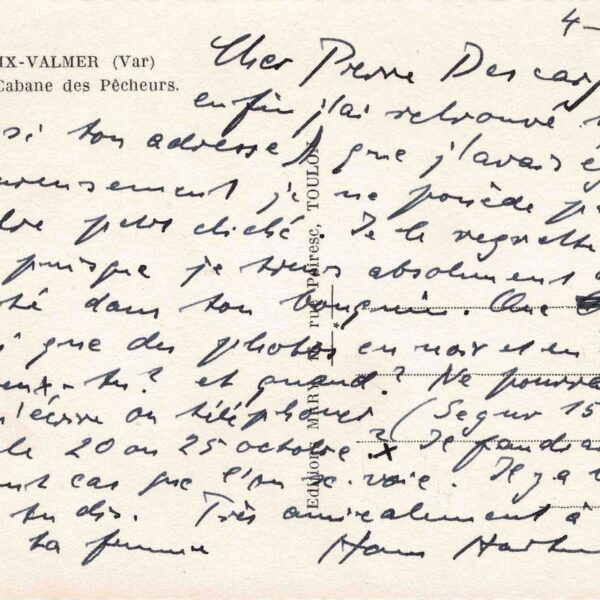 4-
IX-VALMER (Var)
Cabane des Pêcheurs.
Cher Pierre Descarg
enfin j'ai retrouvé
si ton adresse) que j'avais ég
eureusement je ne possède p
petit cliché. Je le regrette
puisque je tiens absolument
té dans ton bouquin. Que
que des photos en noir et en
eux-tu? et quand? Ne pourra
m'écrire ou téléphoner (Segur 15
le 20 ou 25 octobre? Il faudra
cas que l'on se voie. Il y a
tu dis. Très amicalement à
ta femme Hans Hartu
Editions MAR rue Peiresc, TOULON